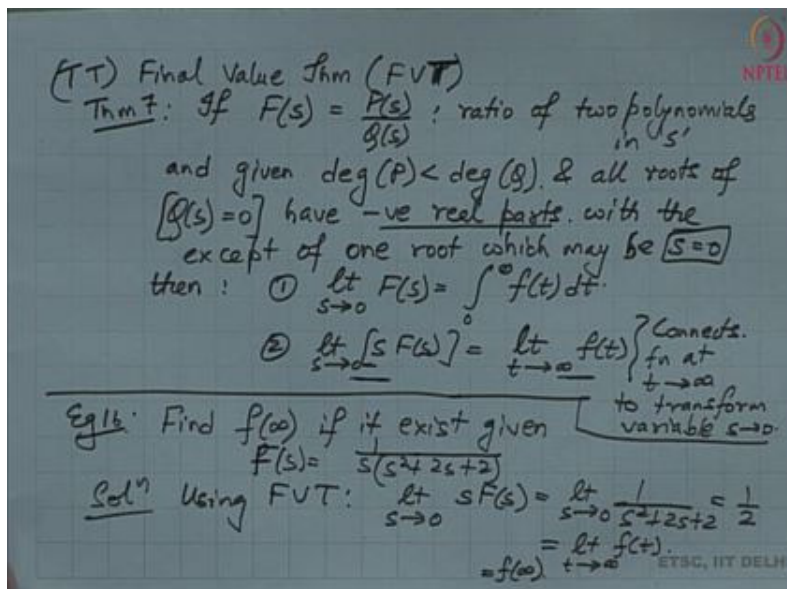 NPTEL
(TT) Final Value Thm (FVT)
Thm 7: If F(s) = P(s)/Q(s) : ratio of two polynomials
in 's'
and given deg (P) < deg (Q). & all roots of
[Q(s) = 0] have -ve real parts. with the
except of one root which may be s=0
then : ① lt s→0 F(s) = ∫₀^∞ f(t) dt.
② lt s→0 [s F(s)] = lt t→∞ f(t) } Connects.
fn at
t→∞
to transform
variable s→0.
Eg 16. Find f(∞) if it exist given
F(s) = 1/s(s²+2s+2)
Solⁿ Using FVT: lt s→0 sF(s) = lt s→0 1/s²+2s+2 = 1/2
= lt t→∞ f(t).
= f(∞)
ETSC, IIT DELH